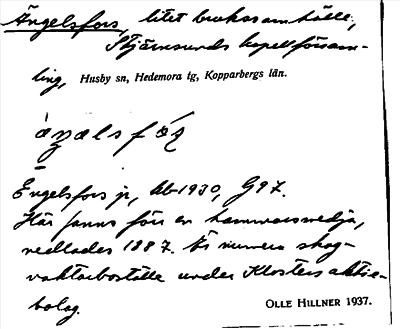 Ängelsfors, litet brukssamhälle,
Stjärnsunds kapellförsam-
ling, Husby sn, Hedemora tg, Kopparbergs län.
Engelsfors jr, kb 1930, G97.
Här fanns förr en hammarsmedja,
nedlades 1887. Är numera skog-
vaktarboställe under Klosters aktie-
bolag.
OLLE HILLNER 1937.